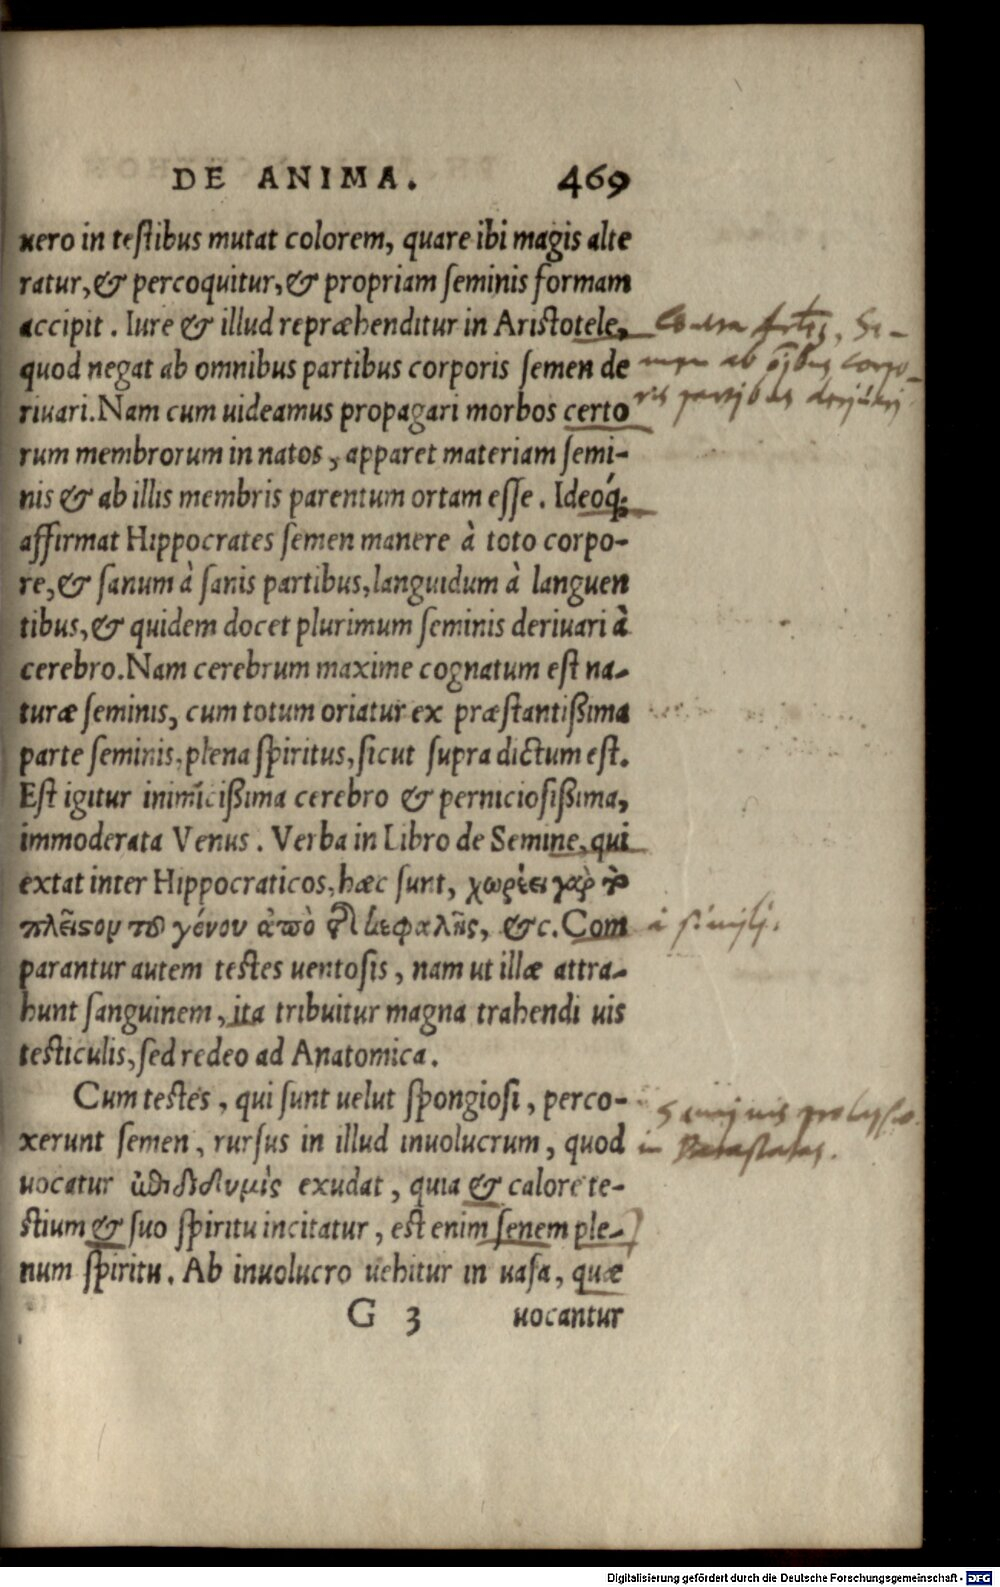 DE ANIMA. 469
uero in testibus mutat colorem, quare ibi magis alte
ratur, & percoquitur, & propriam seminis formam
accipit. Iure & illud repræhenditur in Aristotele,
quod negat ab omnibus partibus corporis semen de
riuari. Nam cum uideamus propagari morbos certo
rum membrorum in natos, apparet materiam semi-
nis & ab illis membris parentum ortam esse. Ideoq́;
affirmat Hippocrates semen manere à toto corpo-
re, & sanum à sanis partibus, languidum à languen
tibus, & quidem docet plurimum seminis deriuari à
cerebro. Nam cerebrum maxime cognatum est na-
turæ seminis, cum totum oriatur ex præstantißima
parte seminis, plena spiritus, sicut supra dictum est.
Est igitur inimicißima cerebro & perniciosißima,
immoderata Venus. Verba in Libro de Semine, qui
extat inter Hippocraticos, hæc sunt, χωρέει γὰρ τὸ
πλεῖστον τοῦ γόνου ἀπὸ τῆς κεφαλῆς, &c. Com
parantur autem testes uentosis, nam ut illæ attra-
hunt sanguinem, ita tribuitur magna trahendi uis
testiculis, sed redeo ad Anatomica.
Cum testes, qui sunt uelut spongiosi, perco-
xerunt semen, rursus in illud inuolucrum, quod
uocatur exudat, quia & calore te-
stium & suo spiritu incitatur, est enim semen ple-
num spiritu. Ab inuolucro uehitur in uasa, quæ
G 3 uocantur
Se-
men ab oĩbus corpo-
ris partibus deriuari
à simili.
in Parastatas.
Digitalisierung gefördert durch die Deutsche Forschungsgemeinschaft - DFG